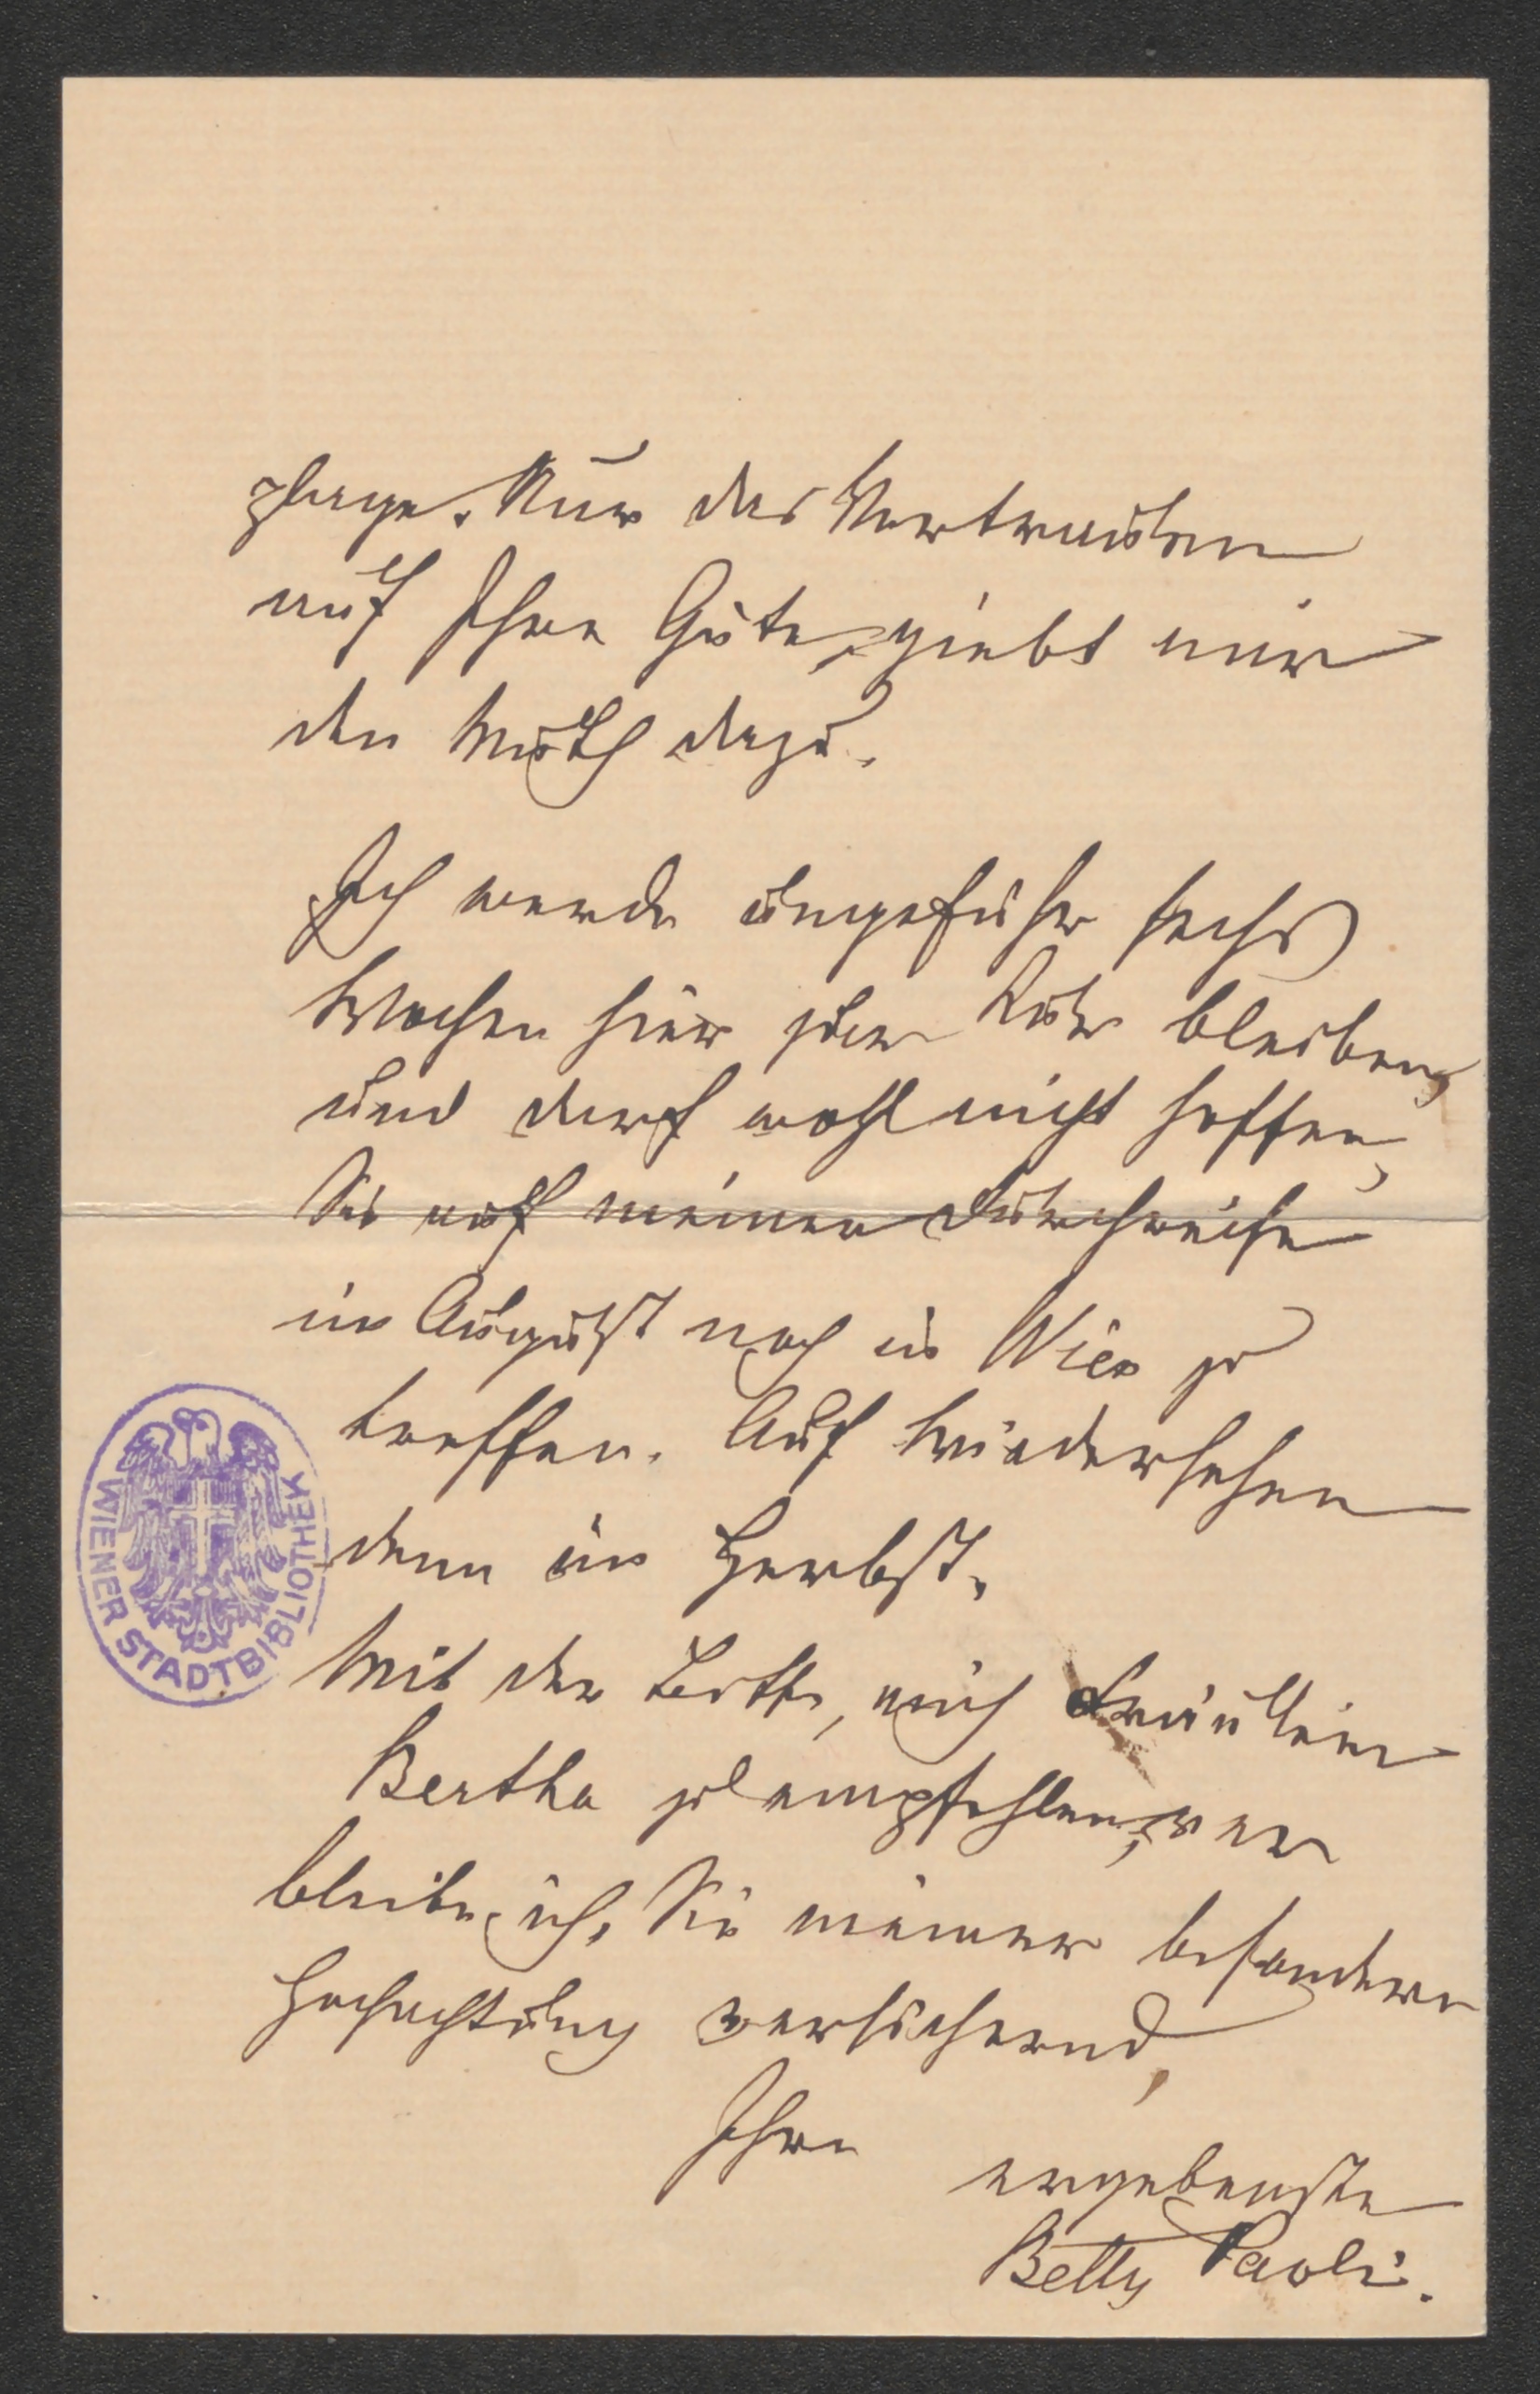 plage. Nur das Vertrauen
auf Ihre Güte, giebt mir
den Muth dazu.
Ich werde ungefähr sechs
Wochen hier zur Kur bleiben,
und darf wohl nicht hoffen,
Sie auf meiner Durchreise
im August noch in Wien zu
treffen. Auf Wiedersehen
denn im Herbst.
Mit der Bitte, mich Fräulein
Bertha zu empfehlen, ver
bleibe ich, Sie meiner besondern
Hochachtung versichernd,
Ihre
ergebenste
Betty Paoli.
WIENER STADTBIBLIOTHEK